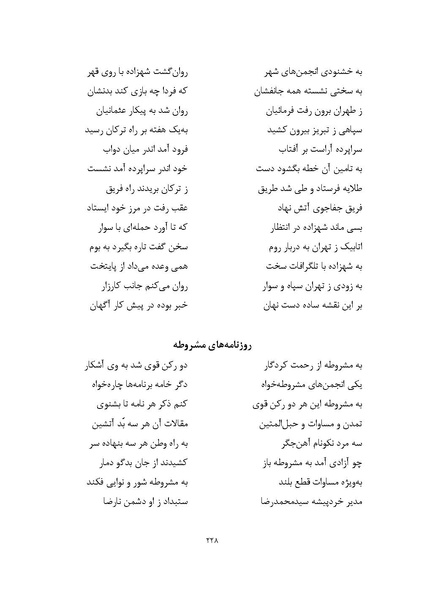 به خشنودی انجمن‌های شهر روان‌گشت شهزاده با روی قهر
به سختی نشسته همه جانفشان که فردا چه بازی کند بدنشان
ز طهران برون رفت فرمانیان روان شد به پیکار عثمانیان
سپاهی ز تبریز بیرون کشید به‌یک هفته بر راه ترکان رسید
سراپرده آراست بر آفتاب فرود آمد اندر میان دواب
به تامین آن خطه بگشود دست خود اندر سراپرده آمد نشست
طلایه فرستاد و طی شد طریق ز ترکان بریدند راه فریق
فریق جفاجوی آتش نهاد عقب رفت در مرز خود ایستاد
بسی ماند شهزاده در انتظار که تا آورد حمله‌ای با سوار
اتابیک ز تهران به دربار روم سخن گفت تاره بگیرد به بوم
به شهزاده با تلگرافات سخت همی وعده می‌داد از پایتخت
به زودی ز تهران سپاه و سوار روان می‌کنم جانب کارزار
بر این نقشه ساده دست نهان خبر بوده در پیش کار آگهان
روزنامه‌های مشروطه
به مشروطه از رحمت کردگار دو رکن قوی شد به وی آشکار
یکی انجمن‌های مشروطه‌خواه دگر خامه برنامه‌ها چاره‌خواه
به مشروطه این هر دو رکن قوی کنم ذکر هر نامه تا بشنوی
تمدن و مساوات و حبل‌المتین مقالات آن هر سه بُد آتشین
سه مرد نکونام آهن‌جگر به راه وطن هر سه بنهاده سر
چو آزادی آمد به مشروطه باز کشیدند از جان بدگو دمار
به‌ویژه مساوات قطع بلند به مشروطه شور و نوایی فکند
مدیر خردپیشه سیدمحمدرضا ستبداد ز او دشمن نارضا
۲۲۸